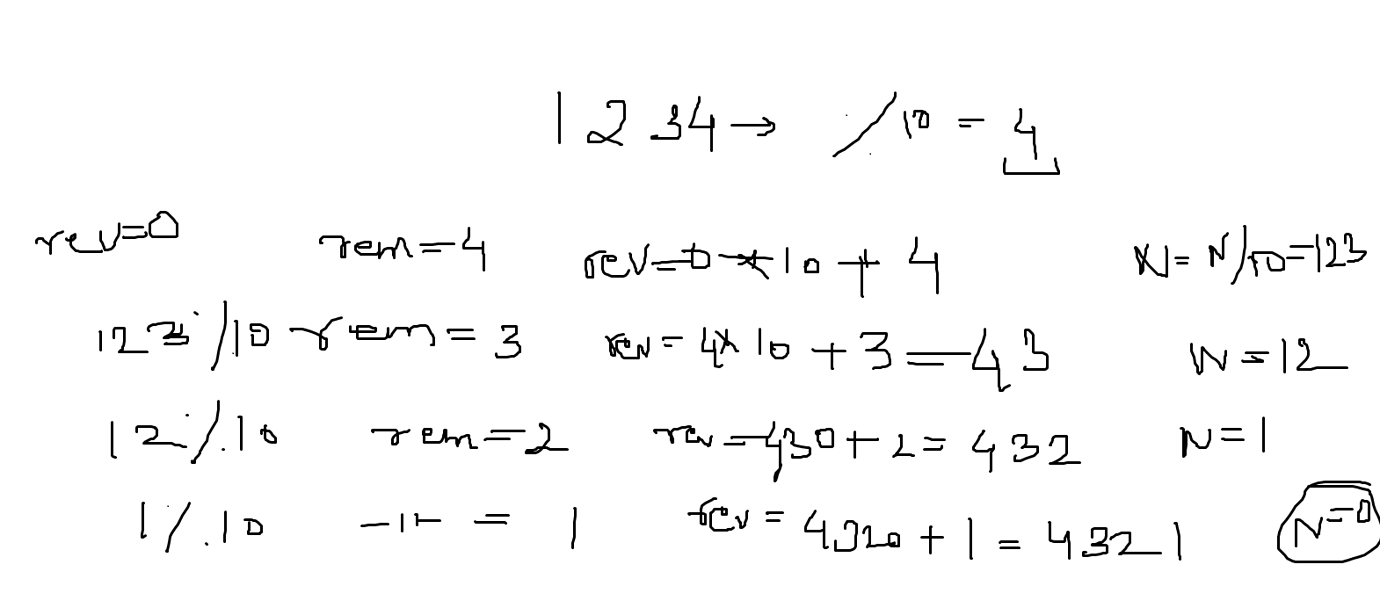 1 2 34 → % 10 = 4
rev=0 rem=4 rev=0*10+4 N=N/10=123
123 % 10 rem=3 rev=4*10+3=43 N=12
12 % 10 rem=2 rev=430+2=432 N=1
1 % 10 -11- = 1 rev=4320+1=4321 N=0